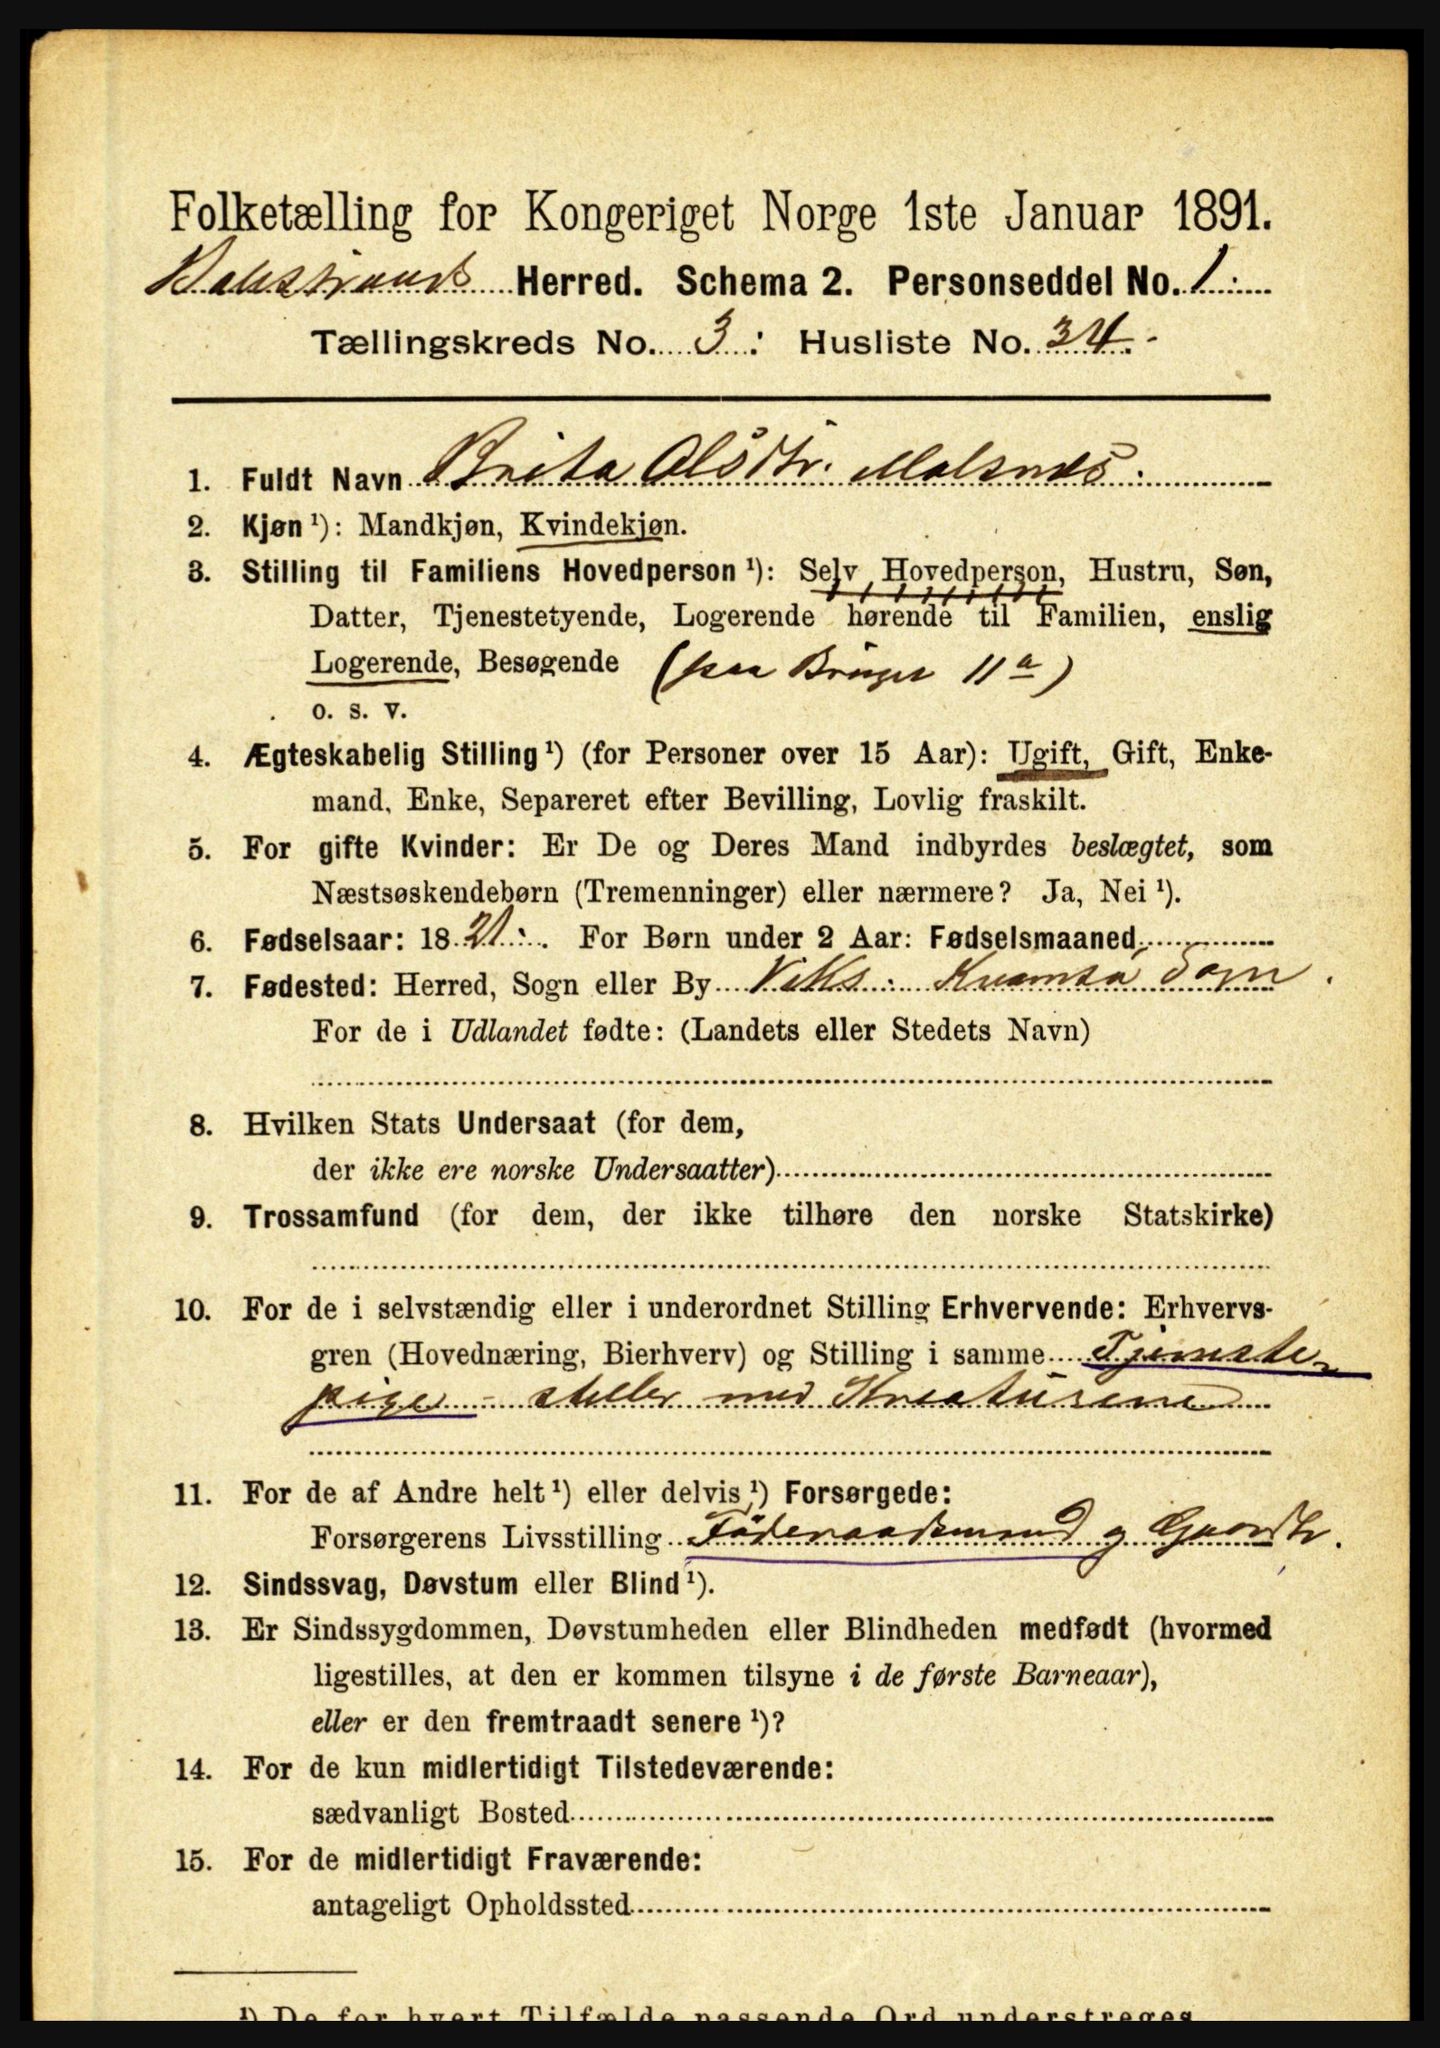 Folketælling for Kongeriget Norge 1ste Januar 1891.
Balestrands Herred. Schema 2. Personseddel No. 1.
Tællingskreds No. 3. Husliste No. 34.
1. Fuldt Navn Brita Olsdtr. Malsnes.
2. Kjøn ¹): Mandkjøn, Kvindekjøn.
3. Stilling til Familiens Hovedperson ¹): Selv Hovedperson, Hustru, Søn,
Datter, Tjenestetyende, Logerende hørende til Familien, enslig
Logerende, Besøgende (paa Bruget 11a)
o. s. v.
4. Ægteskabelig Stilling ¹) (for Personer over 15 Aar): Ugift, Gift, Enke-
mand, Enke, Separeret efter Bevilling, Lovlig fraskilt.
5. For gifte Kvinder: Er De og Deres Mand indbyrdes beslægtet, som
Næstsøskendebørn (Tremenninger) eller nærmere? Ja, Nei ¹).
6. Fødselsaar: 1821. For Børn under 2 Aar: Fødselsmaaned
7. Fødested: Herred, Sogn eller By Viks. Kvamsø Sogn.
For de i Udlandet fødte: (Landets eller Stedets Navn)
8. Hvilken Stats Undersaat (for dem,
der ikke ere norske Undersaatter)
9. Trossamfund (for dem, der ikke tilhøre den norske Statskirke)
10. For de i selvstændig eller i underordnet Stilling Erhvervende: Erhvervs-
gren (Hovednæring, Bierhverv) og Stilling i samme Tjeneste-
pige - steller med Kreaturene
11. For de af Andre helt ¹) eller delvis ¹) Forsørgede:
Forsørgerens Livsstilling Føderaadsmand og Gaardbr.
12. Sindssvag, Døvstum eller Blind ¹).
13. Er Sindssygdommen, Døvstumheden eller Blindheden medfødt (hvormed
ligestilles, at den er kommen tilsyne i de første Barneaar),
eller er den fremtraadt senere ¹)?
14. For de kun midlertidigt Tilstedeværende:
sædvanligt Bosted
15. For de midlertidigt Fraværende:
antageligt Opholdssted
¹) De for hvert Tilfælde passende Ord understreges